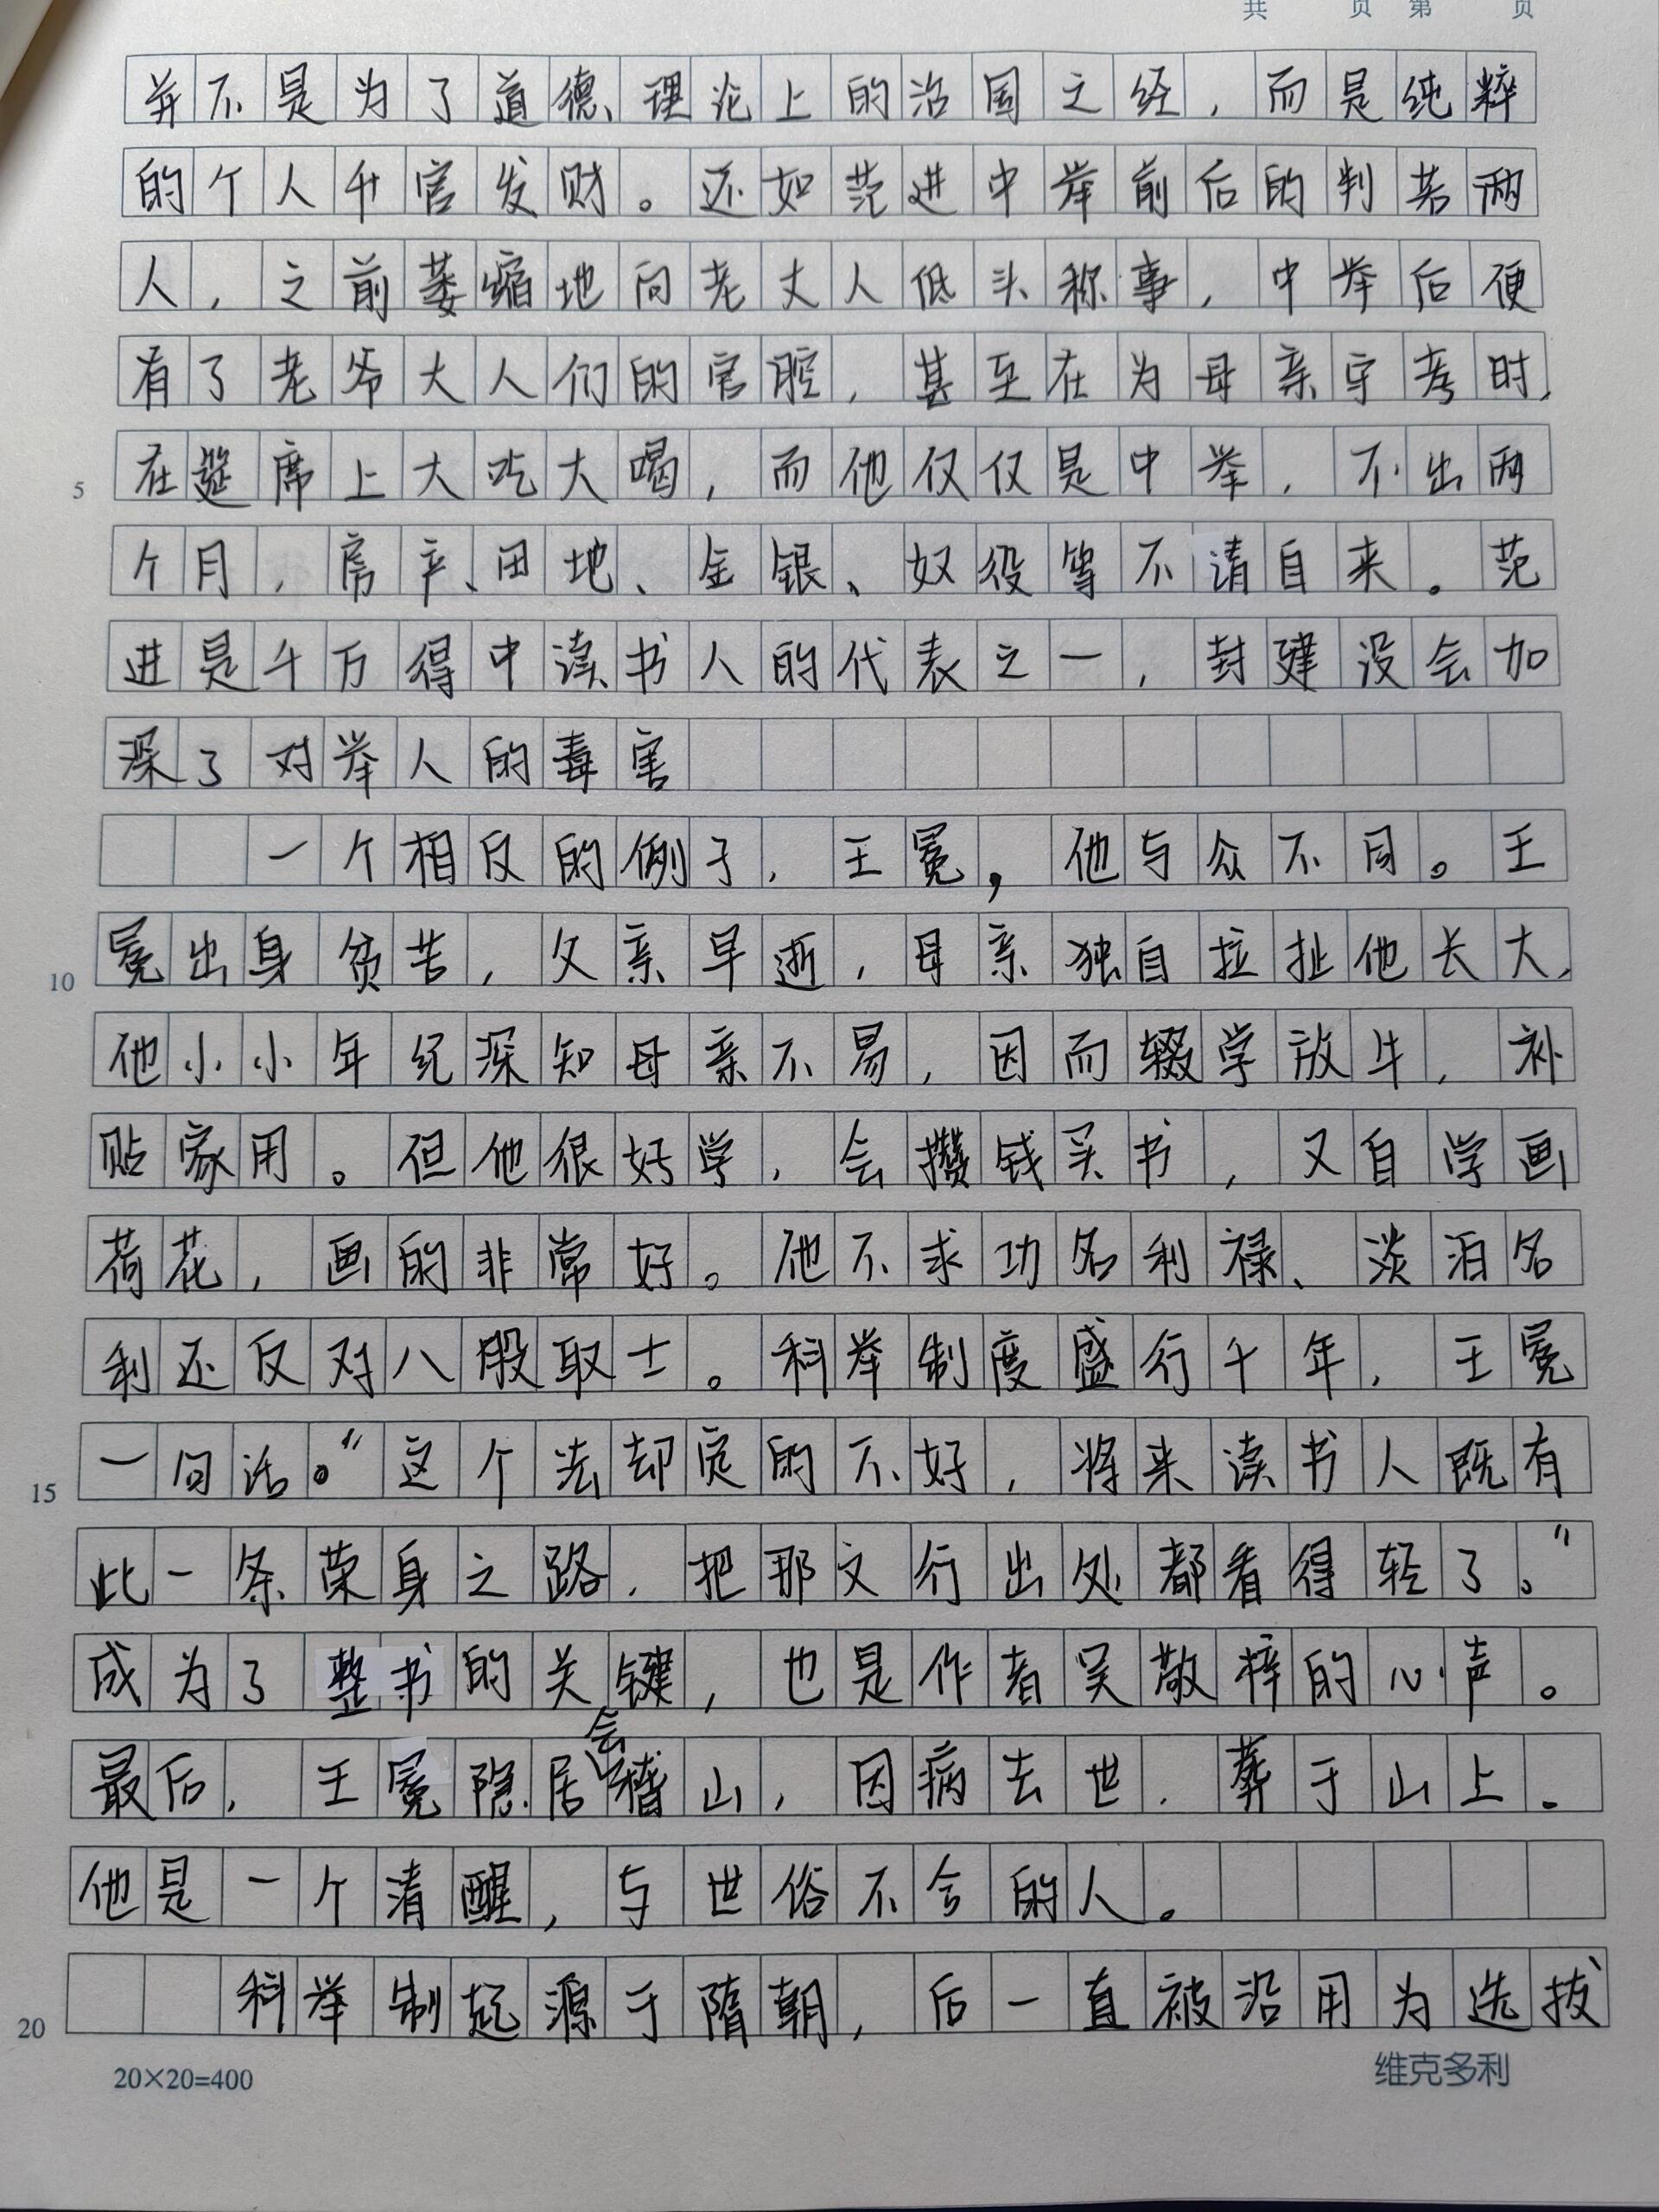 共 页 第 页
并不是为了道德、理论上的治国之经，而是纯粹
的个人升官发财。还如范进中举前后的判若两
人，之前萎缩地向老丈人低头称事，中举后便
有了老爷大人们的官腔，甚至在为母亲守孝时，
在筵席上大吃大喝，而他仅仅是中举，不出两
5
个月，房产、田地、金银、奴役等不请自来。范
进是千万得中读书人的代表之一，封建没会加
深了对举人的毒害
一个相反的例子，王冕，他与众不同。王
冕出身贫苦，父亲早逝，母亲独自拉扯他长大，
10
他小小年纪深知母亲不易，因而辍学放牛，补
贴家用。但他很好学，会攒钱买书，又自学画
荷花，画的非常好。他不求功名利禄、淡泊名
利还反对八股取士。科举制度盛行千年，王冕
一句话。“这个法却定的不好，将来读书人既有
15
此一条荣身之路，把那文行出处都看得轻了。”
成为了整书的关键，也是作者吴敬梓的心声。
最后，王冕隐居会稽山，因病去世，葬于山上。
他是一个清醒，与世俗不合的人。
科举制起源于隋朝，后一直被沿用为选拔
20
20×20=400
维克多利